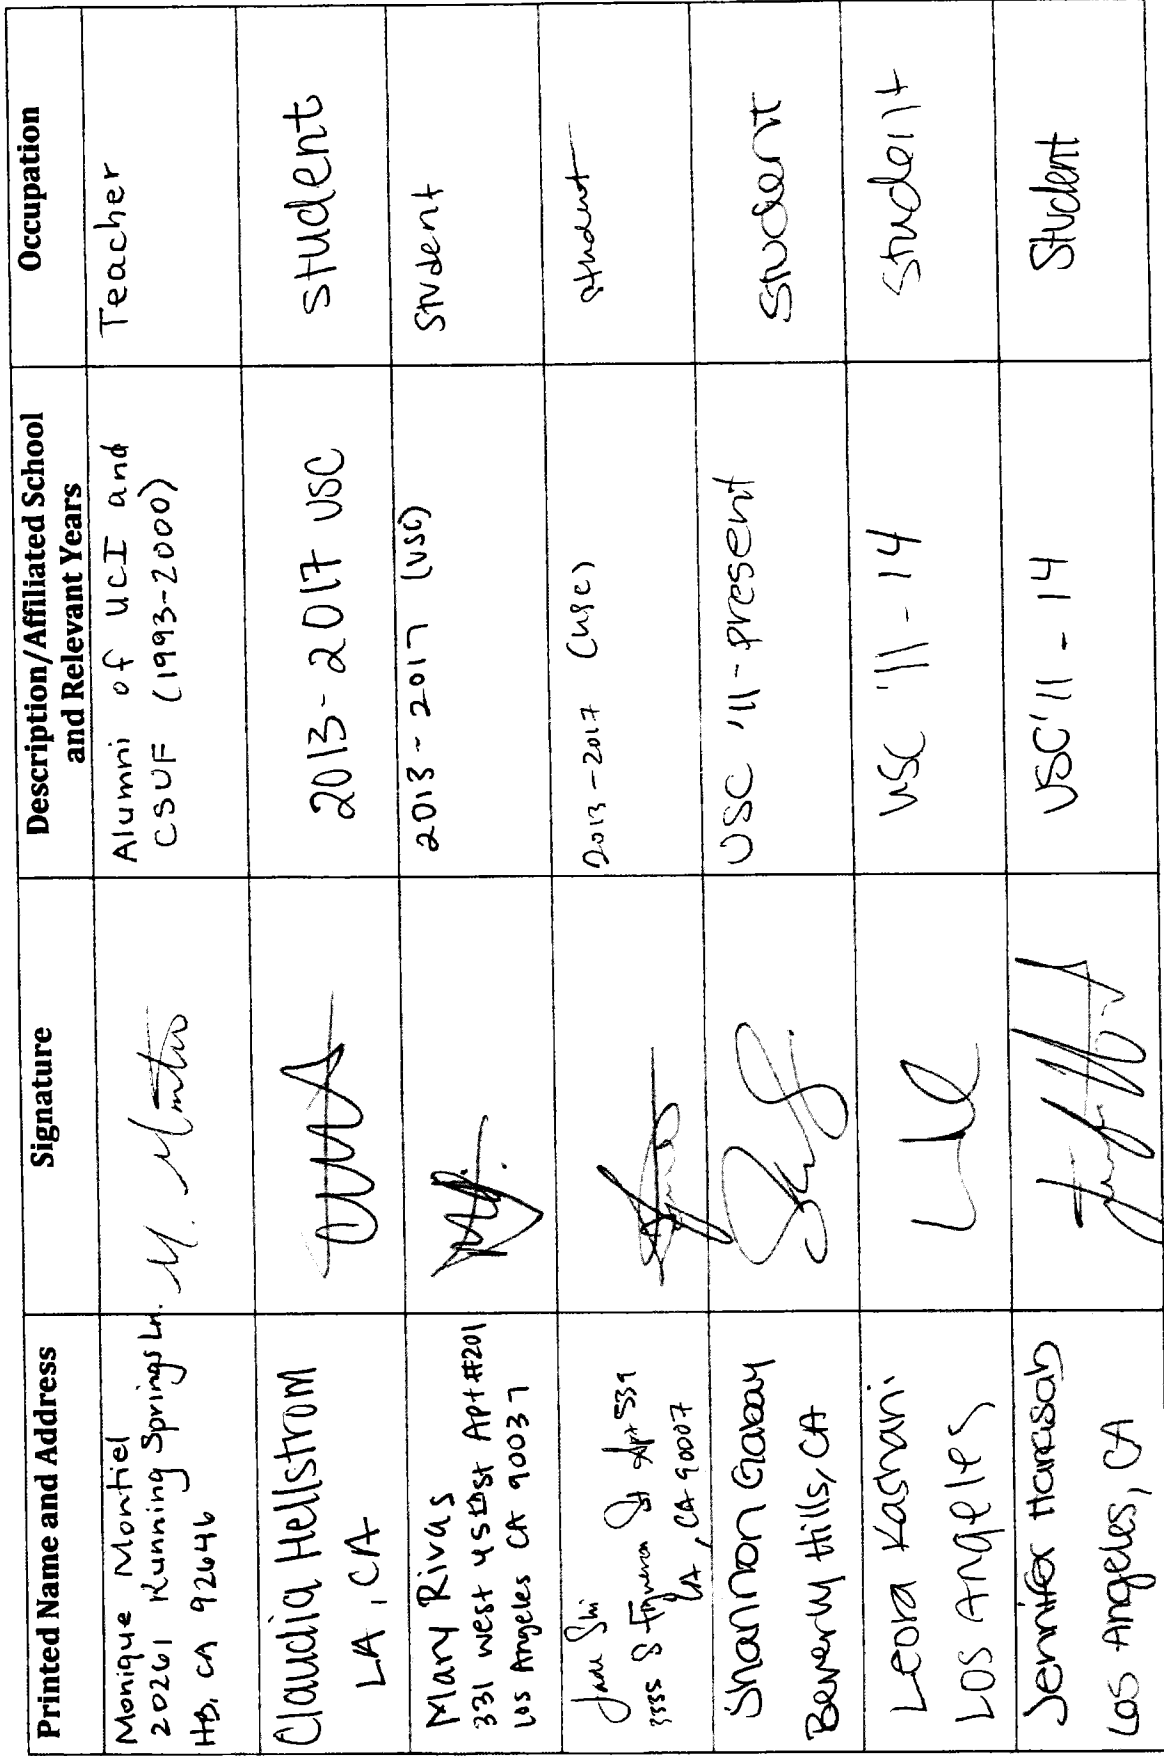 Printed Name and Address
Signature
Description/Affiliated School
and Relevant Years
Occupation
Monique Montiel
20261 Running Springs Ln.
HB, CA 92646
M. Montiel
Alumni of UCI and
CSUF (1993-2000)
Teacher
Claudia Hellstrom
LA, CA
2013-2017 USC
student
Mary Rivas
331 West 45th St Apt #201
Los Angeles CA 90037
2013-2017 (USC)
Student
Jade Shi
3335 S Figueroa St Apt 539
LA, CA 90007
2013-2017 (USC)
student
Shannon Gabay
Beverly Hills, CA
USC '11-present
Student
Leora Kashani
Los Angeles
USC '11-14
student
Jennifer
Los Angeles, CA
USC '11-14
Student